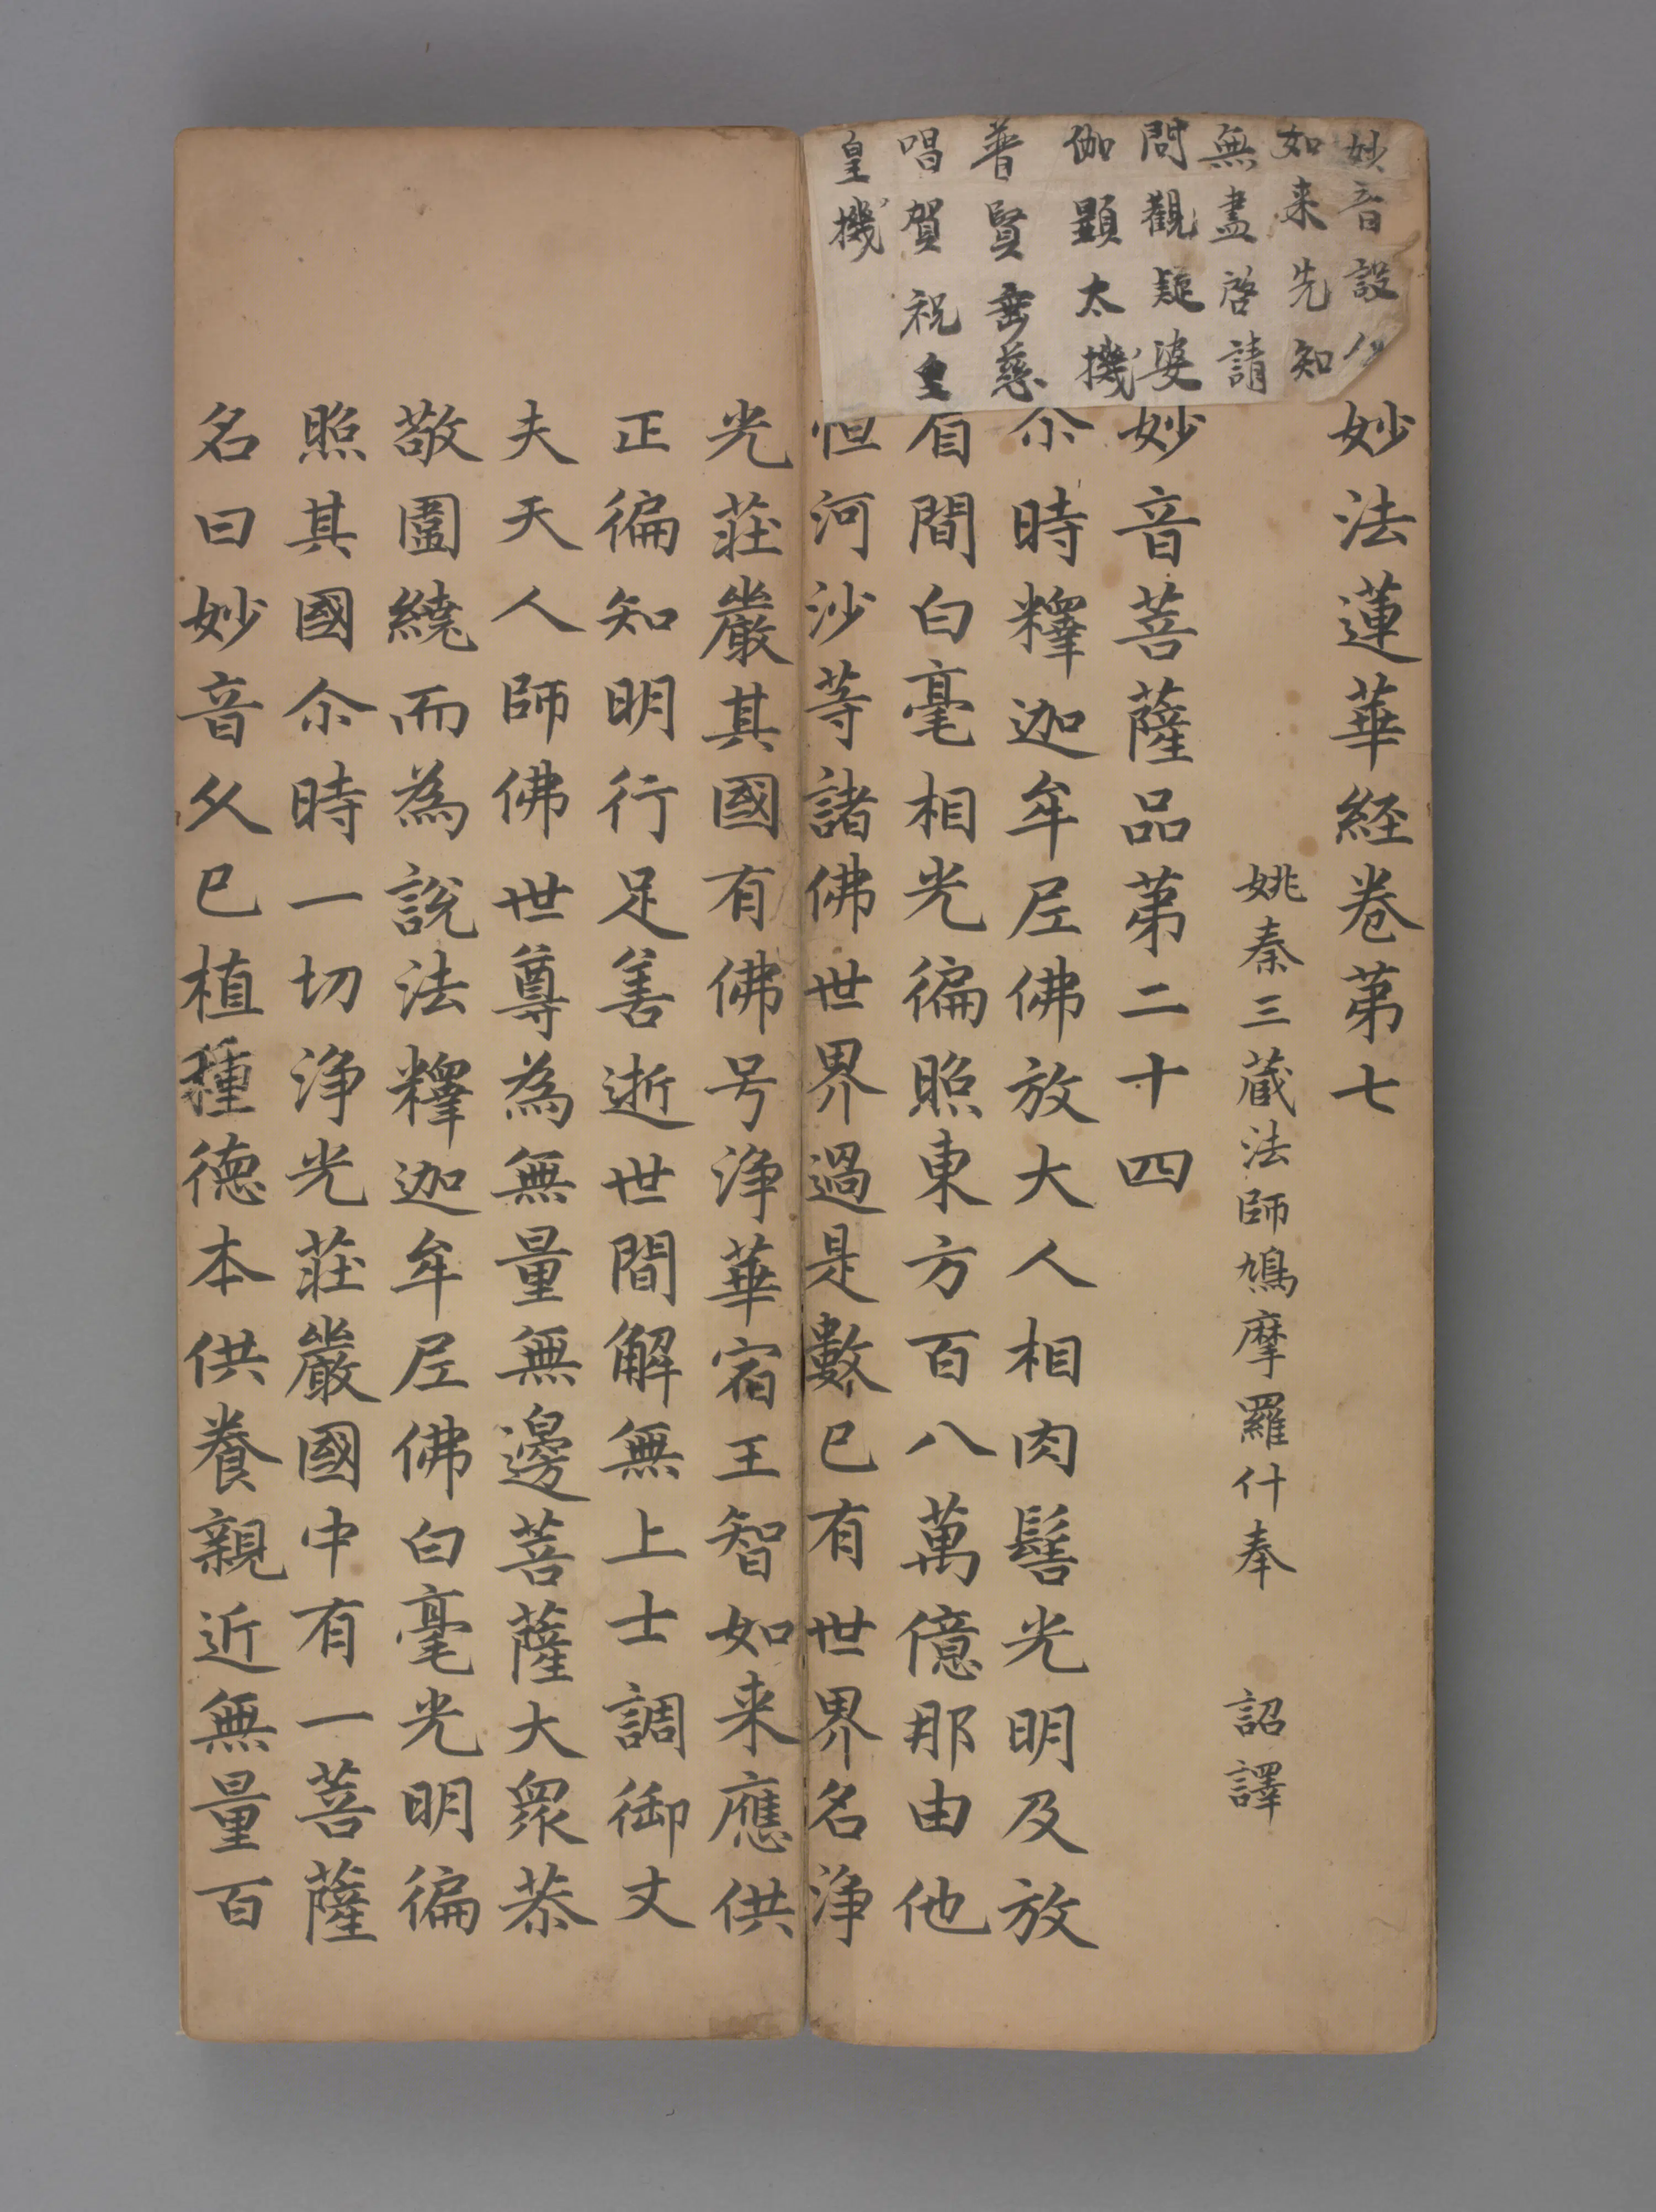 妙音設
如来先知
無盡啓請
問觀疑婆
伽顯太機
普賢垂慈
唱賀祝皇
皇機
妙法蓮華経卷第七
姚秦三蔵法師鳩摩羅什奉　詔譯
妙音菩薩品第二十四
尒時釋迦牟尼佛放大人相肉髻光明及放
眉間白毫相光徧照東方百八萬億那由他
恒河沙等諸佛世界過是數已有世界名浄
光莊嚴其國有佛号浄華宿王智如来應供
正徧知明行足善逝世間解無上士調御丈
夫天人師佛世尊為無量無邊菩薩大眾恭
敬圍繞而為説法釋迦牟尼佛白毫光明徧
照其國尒時一切浄光莊嚴國中有一菩薩
名曰妙音久已植種德本供養親近無量百